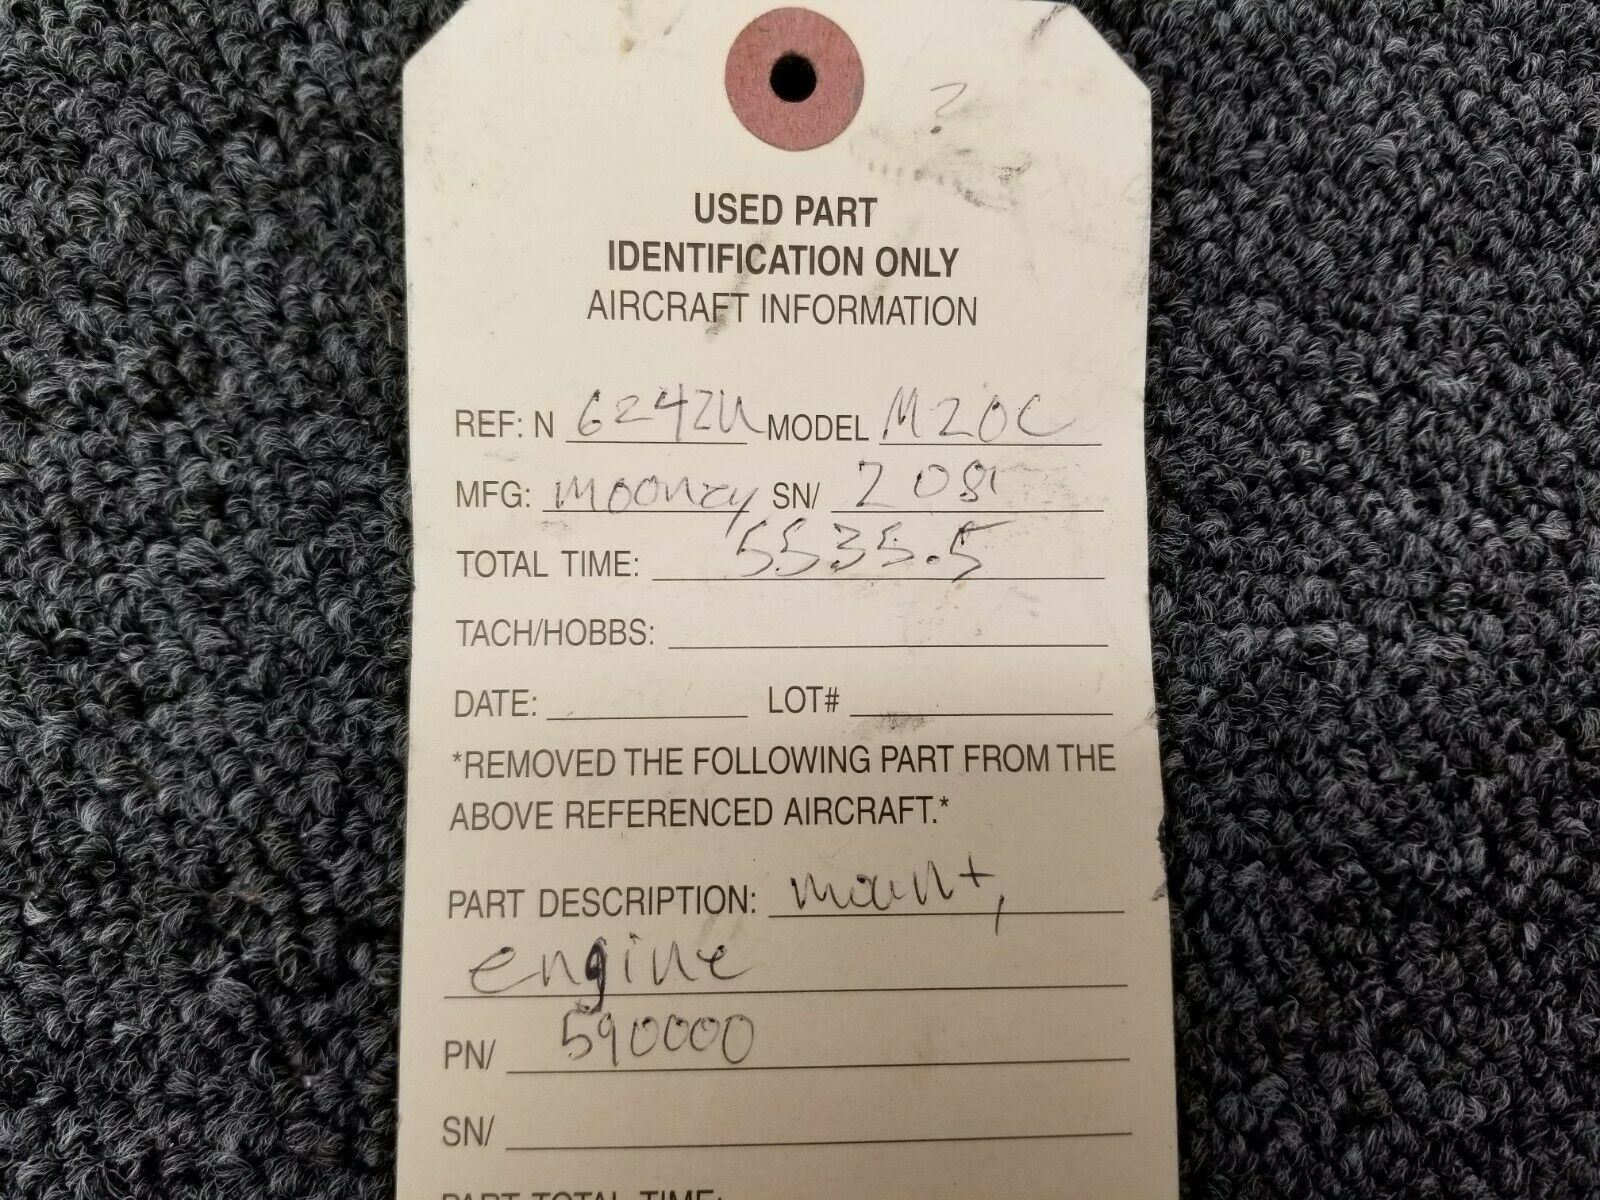 ?
USED PART
IDENTIFICATION ONLY
AIRCRAFT INFORMATION
REF: N 6242U MODEL M20C
MFG: Mooney SN/ 2081
TOTAL TIME: 5535.5
TACH/HOBBS:
DATE: LOT#
*REMOVED THE FOLLOWING PART FROM THE
ABOVE REFERENCED AIRCRAFT.*
PART DESCRIPTION: mount,
engine
PN/ 590000
SN/
PART TOTAL TIME: